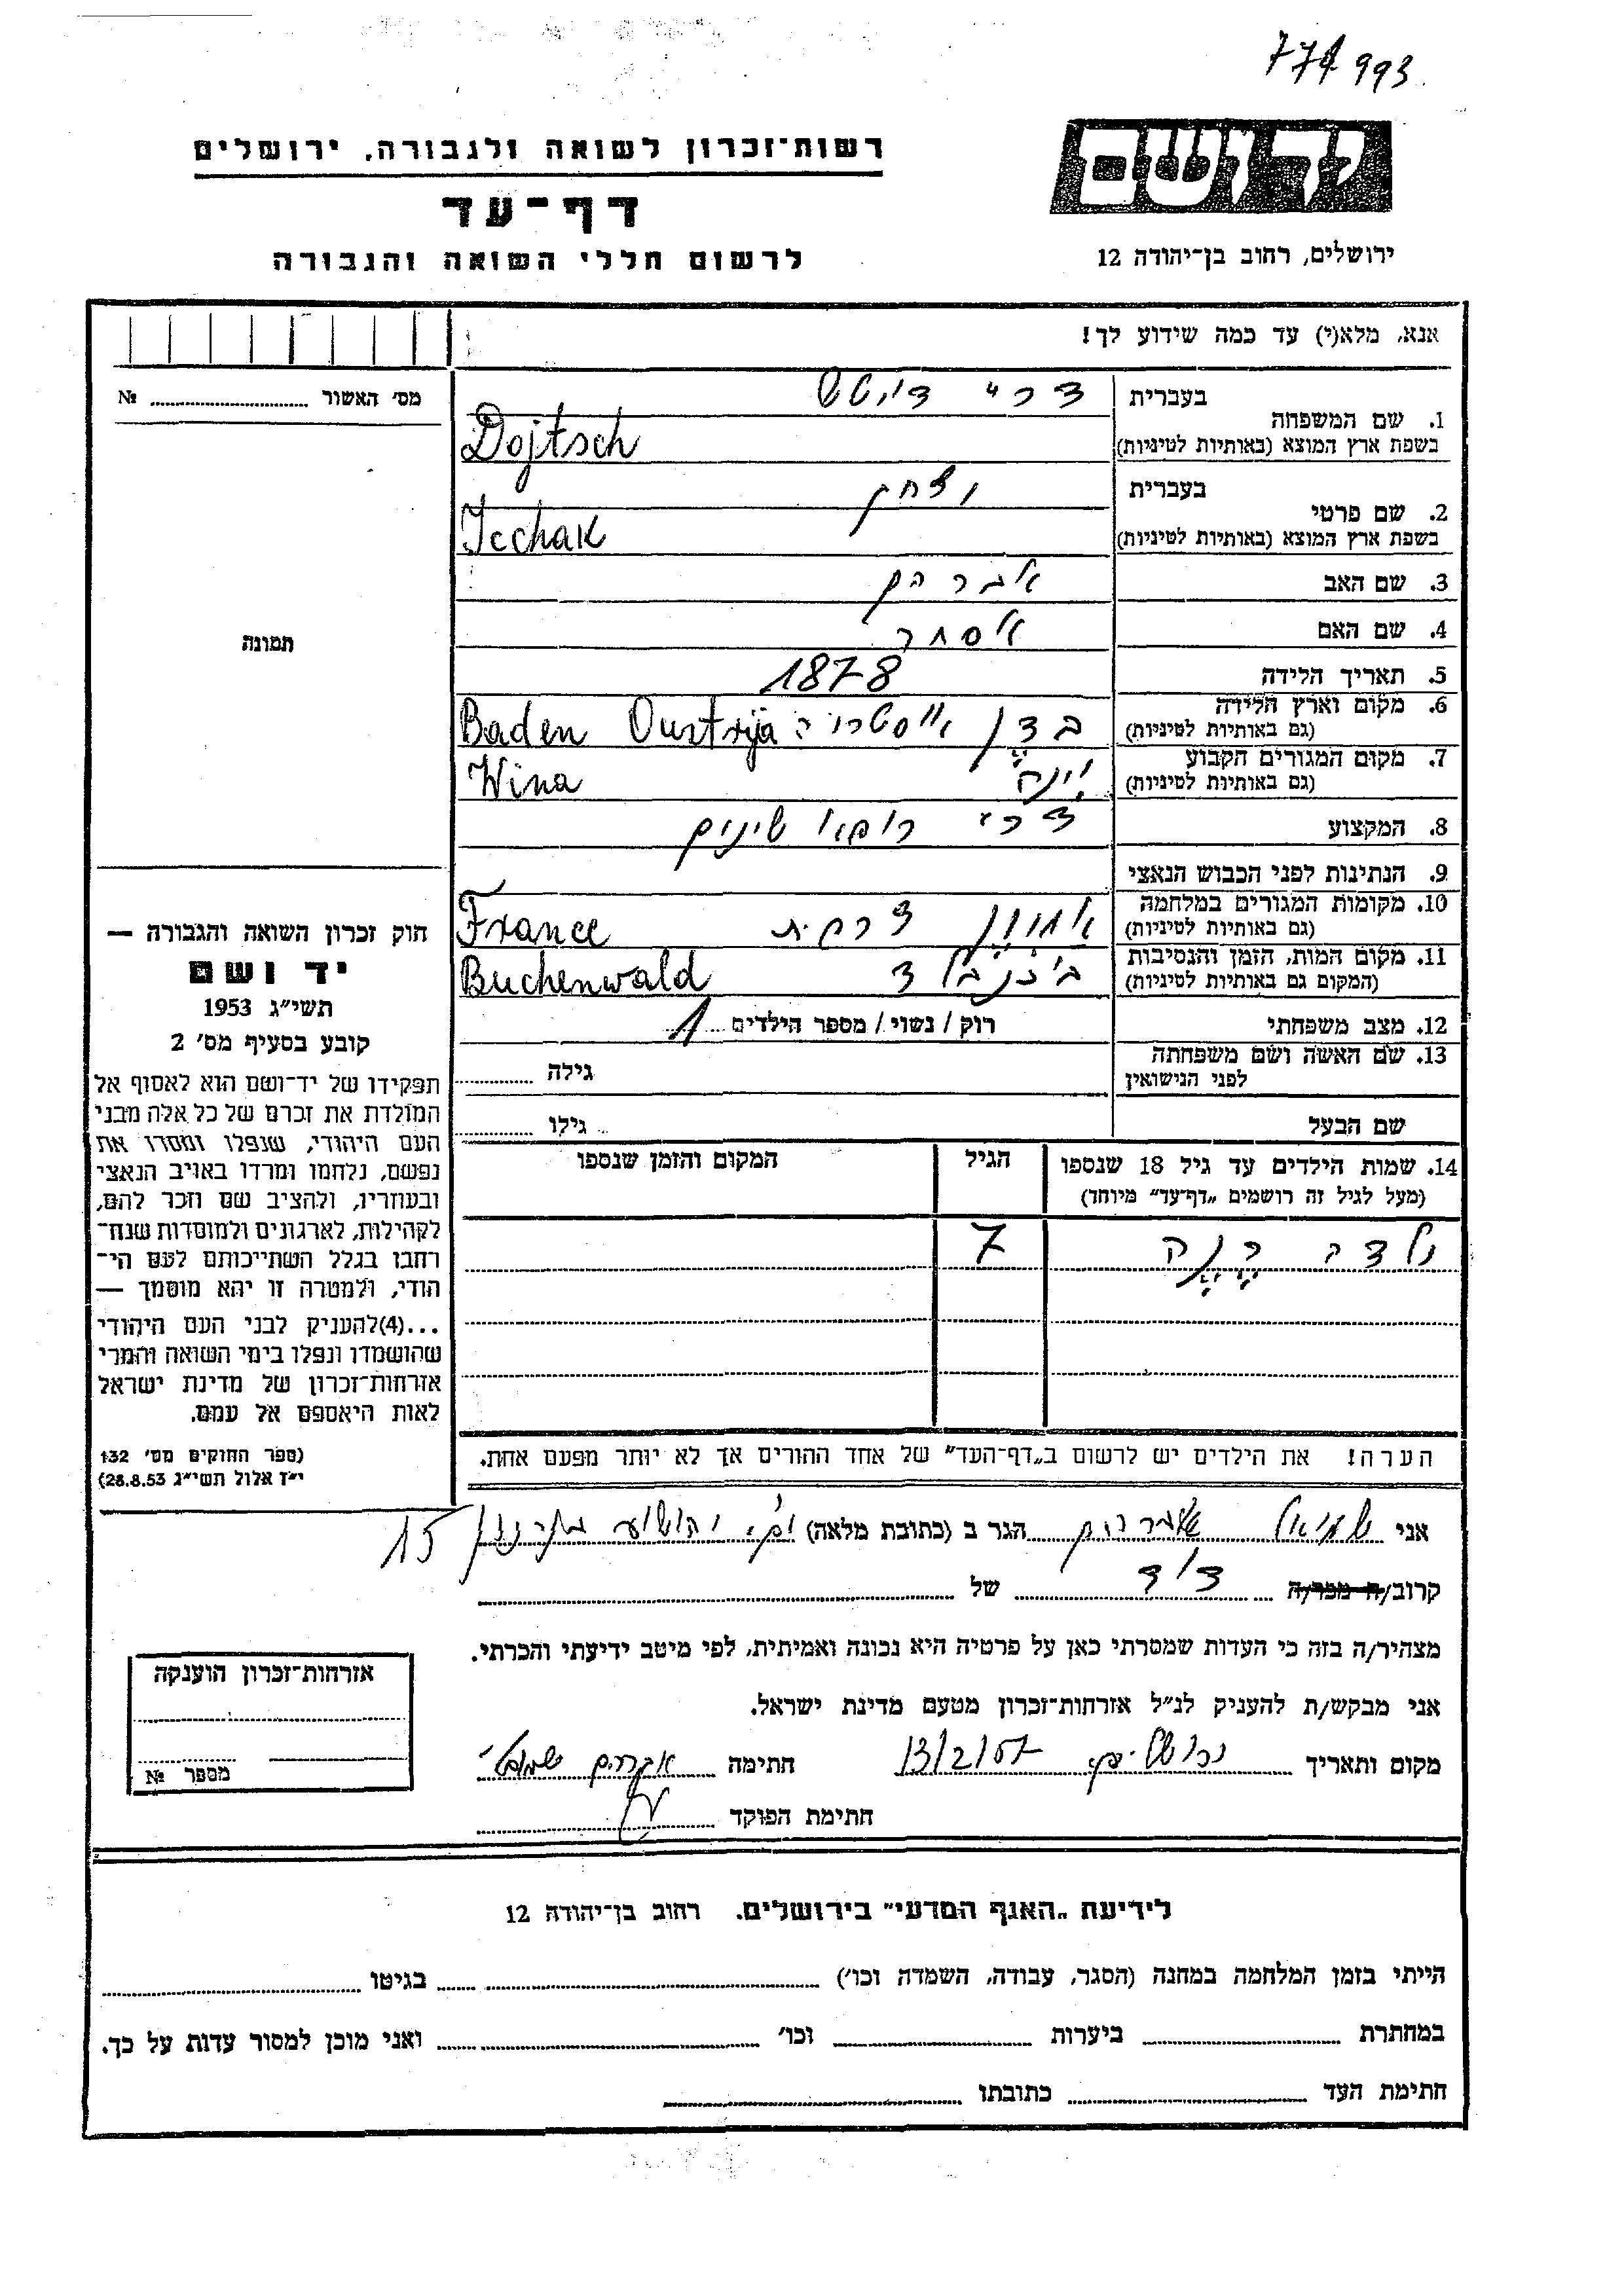 774993
רשות־זכרון לשואה ולגבורה. ירושלים
דף־עד
לרשום חללי השואה והגבורה
יד ושם
ירושלים, רחוב בן־יהודה 12
אנא, מלא(י) עד כמה שידוע לך!
מס׳ האשור № 
תמונה
1. שם המשפחה
בעברית
בשפת ארץ המוצא (באותיות לטיניות)
Dojtsch
2. שם פרטי
בעברית יצחק
בשפת ארץ המוצא (באותיות לטיניות)
Icchak
3. שם האב אברהם
4. שם האם אסתר
5. תאריך הלידה 1878
6. מקום וארץ הלידה
(גם באותיות לטיניות)
בדן אוסטריה Baden Oustrija
7. מקום המגורים הקבוע
(גם באותיות לטיניות)
וינה Wina
8. המקצוע
שינים
9. הנתינות לפני הכבוש הנאצי
10. מקומות המגורים במלחמה
(גם באותיות לטיניות)
צרפת France
11. מקום המות, הזמן והנסיבות
(המקום גם באותיות לטיניות)
Buchenwald
12. מצב משפחתי רוק / נשוי / מספר הילדים 1
13. שם האשה ושם משפחתה
לפני הנישואין
גילה
שם הבעל
גילו
14. שמות הילדים עד גיל 18 שנספו
(מעל לגיל זה רושמים „דף־עד״ מיוחד)
הגיל
המקום והזמן שנספו
ילדה 7
הערה! את הילדים יש לרשום ב„דף־העד״ של אחד ההורים אך לא יותר מפעם אחת.
חוק זכרון השואה והגבורה —
יד ושם
תשי״ג 1953
קובע בסעיף מס׳ 2
תפקידו של יד־ושם הוא לאסוף אל
המולדת את זכרם של כל אלה מבני
העם היהודי, שנפלו ומסרו את
נפשם, נלחמו ומרדו באויב הנאצי
ובעוזריו, ולהציב שם וזכר להם,
לקהילות, לארגונים ולמוסדות שנח־
רחבו בגלל השתייכותם לעם הי־
הודי, ולמטרה זו יהא מוסמך —
...(4)להעניק לבני העם היהודי
שהושמדו ונפלו בימי השואה והמרי
אזרחות־זכרון של מדינת ישראל
לאות היאספם אל עמם.
(ספר החוקים מס׳ 132
י״ז אלול תשי״ג 28.8.53)
אני שמואלי אברהם הגר ב (כתובת מלאה) יהושע בן נון 15
קרוב/ה מכר/ה דוד של
מצהיר/ה בזה כי העדות שמסרתי כאן על פרטיה היא נכונה ואמיתית, לפי מיטב ידיעתי והכרתי.
אני מבקש/ת להעניק לנ״ל אזרחות־זכרון מטעם מדינת ישראל.
מקום ותאריך ירושלים 13/2/57 חתימה אברהם שמואלי
חתימת הפוקד
אזרחות־זכרון הוענקה
מספר №
לידיעת „האגף המדעי״ בירושלים. רחוב בן־יהודה 12
הייתי בזמן המלחמה במחנה (הסגר, עבודה, השמדה וכו׳) בגיטו
במחתרת ביערות וכו׳ ואני מוכן למסור עדות על כך.
חתימת העד כתובתו